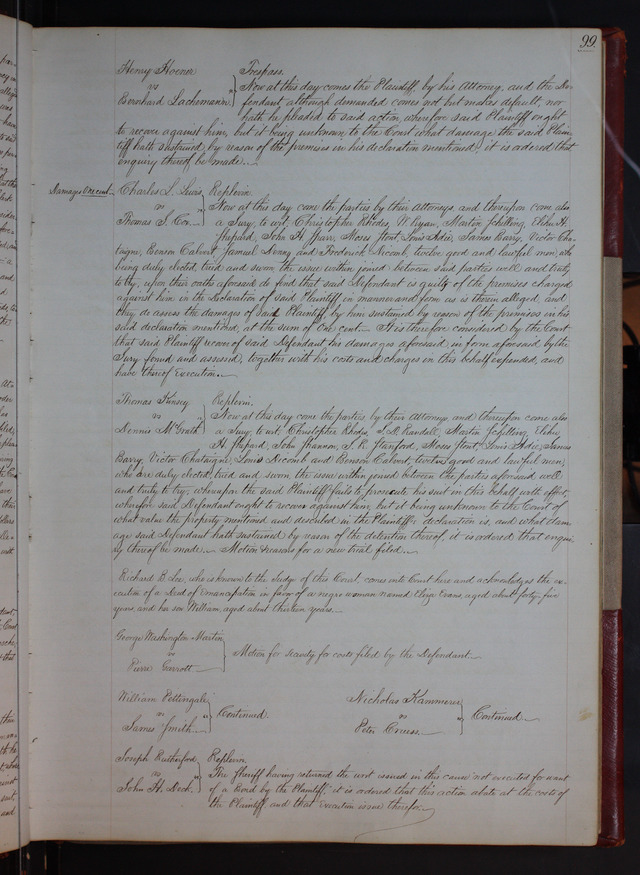 99.
Henry Hoener Trespass.
vs Now at this day comes the Plaintiff, by his Attorney, and the De-
Bernhard Lachemann fendant although demanded comes not but makes default, nor
hath he pleaded to said action, wherefore said Plaintiff ought
to recover against him, but it being unknown to the Court what damage the said Plain-
tiff hath sustained by reason of the premises in his declaration mentioned, it is ordered that
enquiry thereof be made.
Damages One cent Charles L. Lewis Replevin
vs Now at this day come the parties by their Attorneys, and thereupon come also
Thomas J. Cox a Jury, to wit, Christopher Rhodes, W. Ryan, Martin Schilling, Elihu H.
Shepard, John H. Spurr, Moses Stout, Louis Adie, James Barry, Victor Cha-
taigne, Benson Calvert, Samuel and Frederick Dicomb, twelve good and lawful men, who
being duly elected, tried and sworn the issue within joined between said parties well and truly
to try, upon their oaths aforesaid do find that said Defendant is guilty of the premises charged
against him in the Declaration of said Plaintiff in manner and form as is therein alleged, and
they do assess the damages of said Plaintiff, by him sustained by reason of the premises in his
said declaration mentioned, at the sum of One cent. It is therefore considered by the Court
that said Plaintiff recover of said Defendant his damages aforesaid in form aforesaid by the
Jury found and assessed, together with his costs and charges in this behalf expended, and
have thereof Execution.
Thomas Kinsey Replevin.
vs Now at this day come the parties by their Attorneys and thereupon come also
Dennis McGrath a Jury to wit, Christopher Rhodes, Randall, Martin Schilling, Elihu
H. Shepard, John Stanford, Moses Stout, Louis Adie, James
Barry, Victor Chataigne, Louis Dicomb and Benson Calvert, twelve good and lawful men;
who are duly elected, tried and sworn, the issue within joined between the parties aforesaid well
and truly to try, whereupon the said Plaintiff fails to prosecute his suit on this behalf with effect,
wherefore said Defendant ought to recover against him, but it being unknown to the Court of
what value the property mentioned and described in the Plaintiff's declaration is, and what dam-
age said Defendant hath sustained by reason of the detention thereof, it is ordered that enqui-
ry thereof be made. Motion & reasons for a new trial filed.
Richard B. Lee, who is known to the Judge of this Court, comes into Court here and acknowledges the ex-
ecution of a Deed of Emancipation in favor of a negro woman named Eliza Evans, aged about forty five
years, and her son William, aged about thirteen years.
George Washington Martin
vs Motion for security for costs filed by the Defendant.
Pierre Garrott
William Pettengale
vs Continued.
James Smith.
Nicholas Kammerer
vs Continued.
Peter Creuse
Joseph Rutherford Replevin.
vs The Sheriff having returned the writ issued in this cause "not executed for want
John H. Dock. of a Bond by the Plaintiff," it is ordered that this action abate at the costs of
the Plaintiff, and that execution issue therefor.